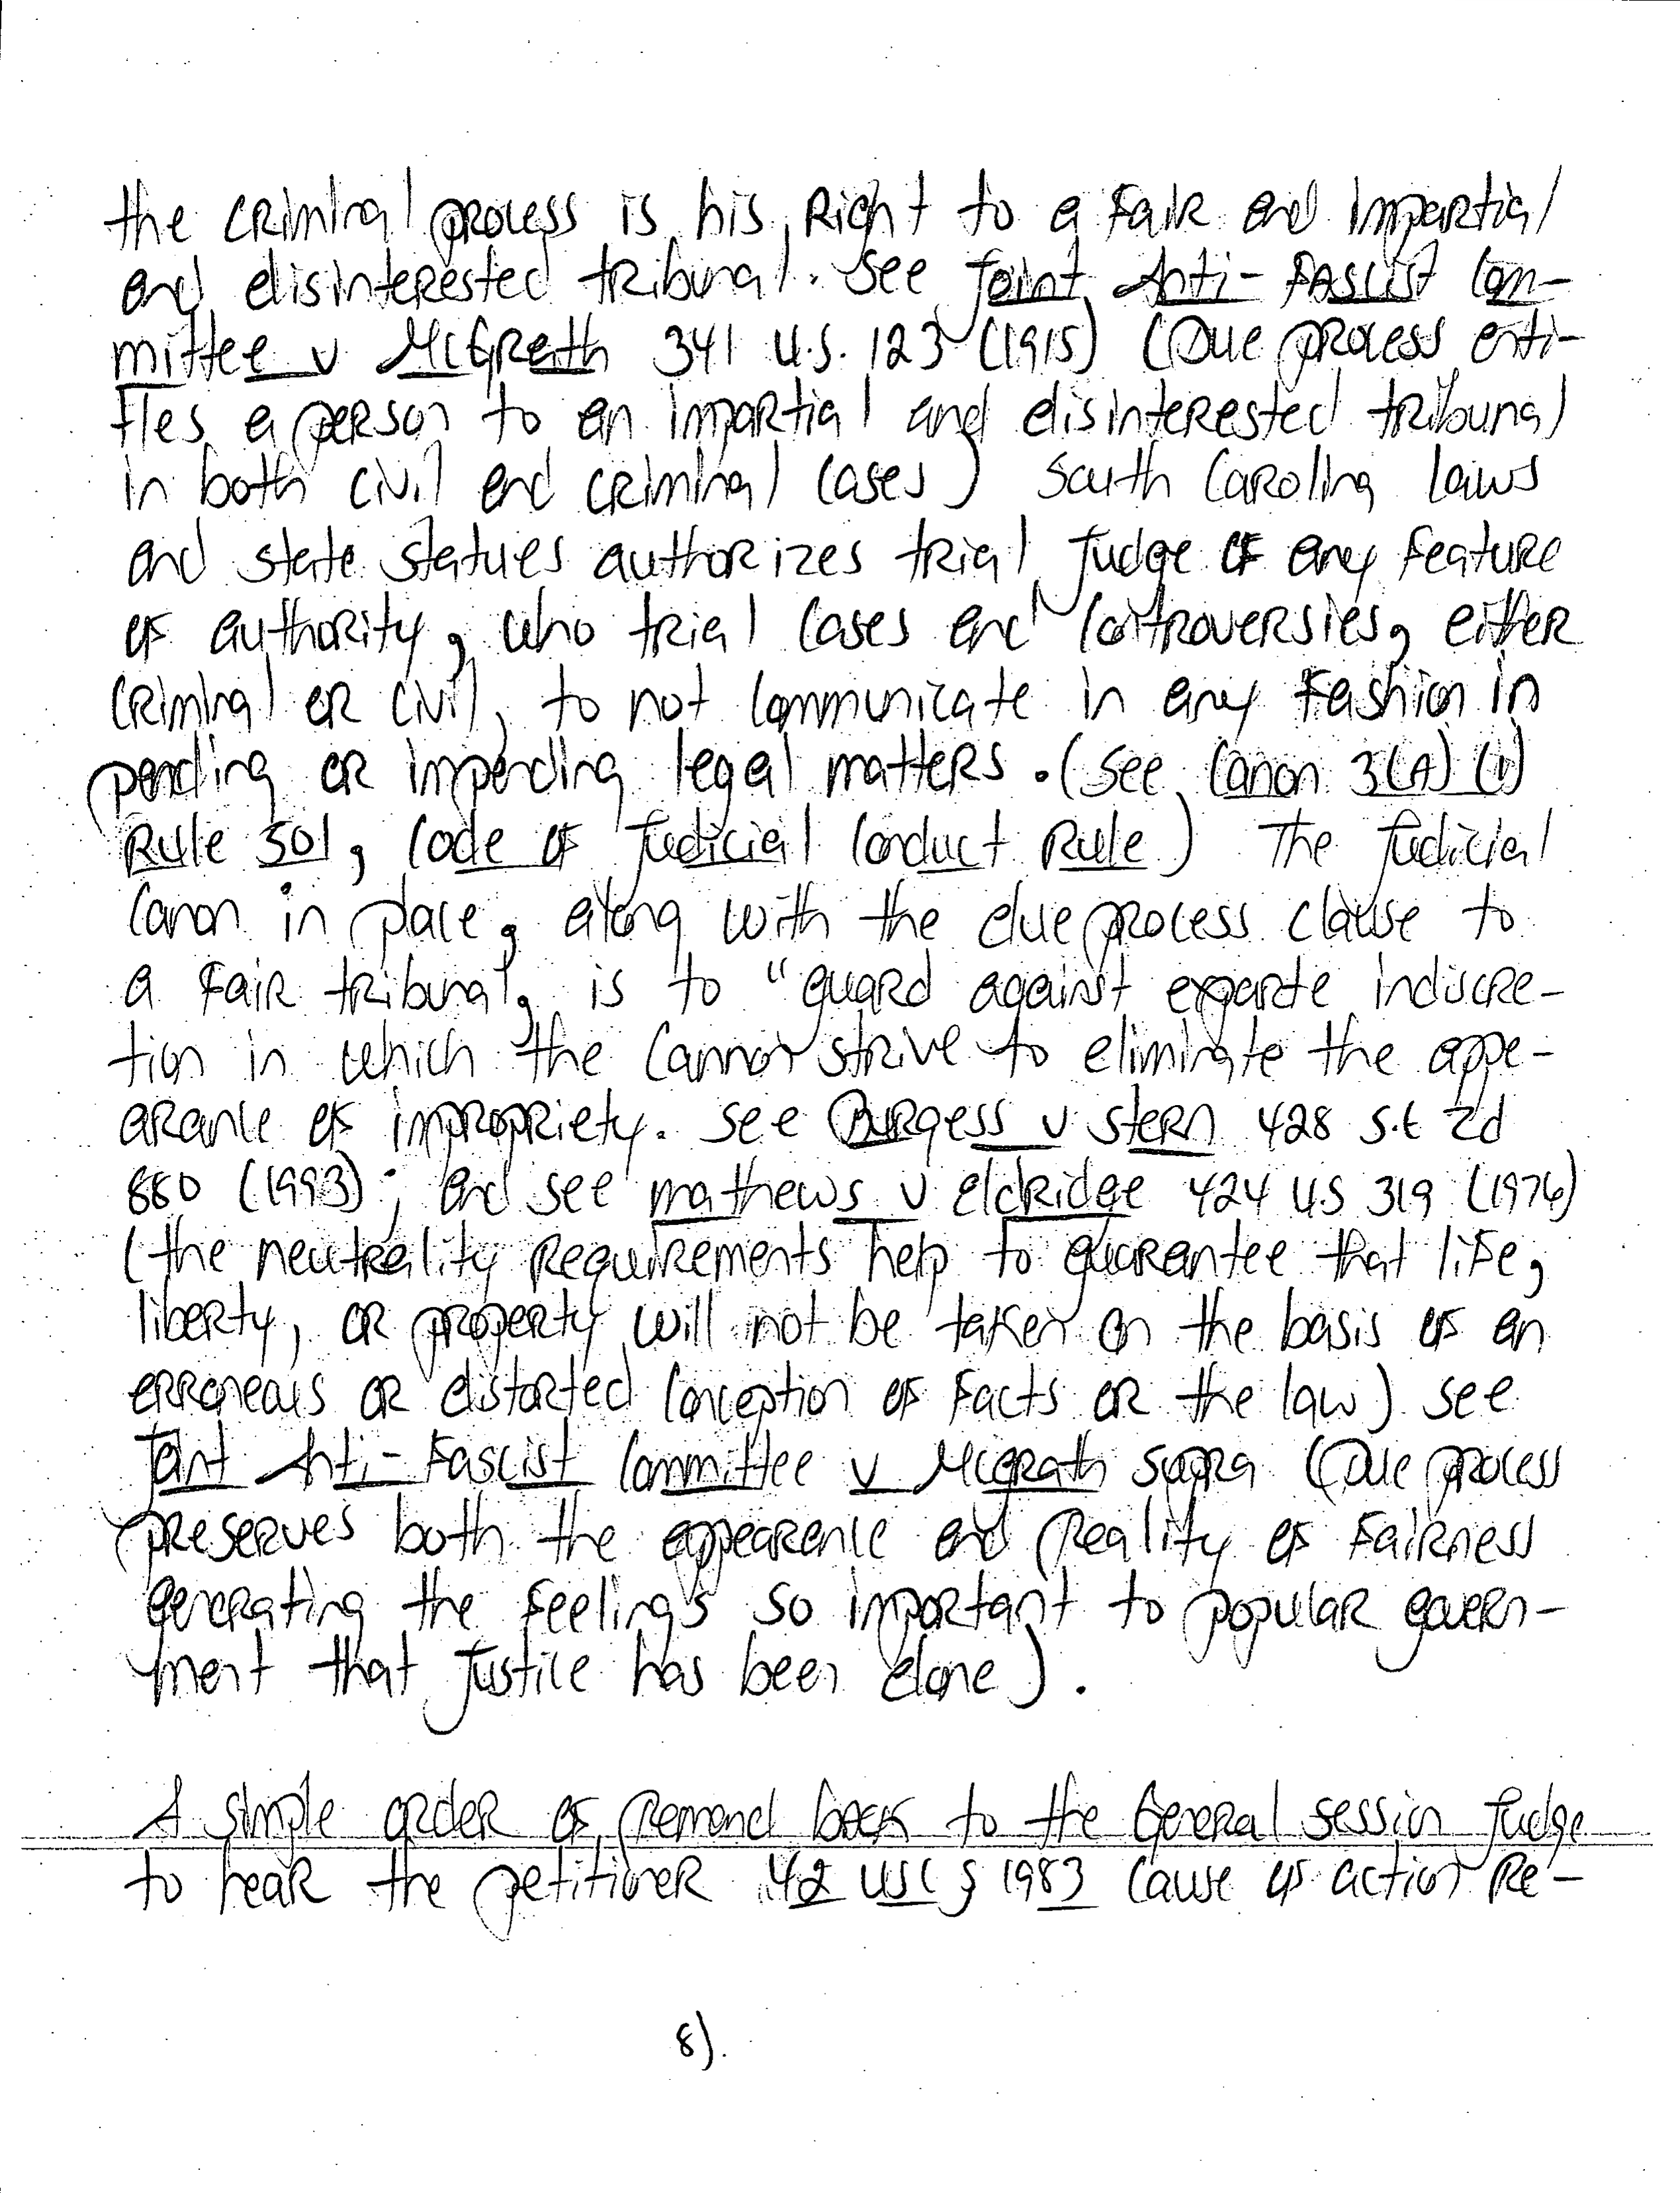 the criminal process is his Right to a Fair and Impartial
and disinterested tribunal. See Joint Anti-Fascist Com-
mittee v McGrath 341 U.S. 123 (1915) (Due process enti-
tles a person to an impartial and disinterested tribunal
in both civil and criminal cases) South Carolina laws
and state statues authorizes trial Judge of any feature
of authority, who trial cases and controversies, either
criminal or civil, to not communicate in any fashion in
pending or impending legal matters. (See Canon 3(A)(1)
Rule 501, Code of Judicial Conduct Rule) The Judicial
Canon in place, along with the due process clause to
a fair tribunal, is to "guard against exparte indiscre-
tion in which the Cannor strive to eliminate the appe-
arance of impropriety. See Burgess v Stern 428 S.E 2d
880 (1993); and see mathews v Eldridge 424 U.S 319 (1976)
(the neutrality Requirements help to guarantee that life,
liberty, or property will not be taken on the basis of an
erroneous or distorted conception of facts or the law) see
Joint Anti-Fascist Committee v McGrath supra (Due process
preserves both the appearence and Reality of Fairness
generating the feelings so important to popular govern-
ment that Justice has been done).
A simple order of Remand back to the General session Judge
to hear the petitioner 42 USC § 1983 cause of action Re-
8).